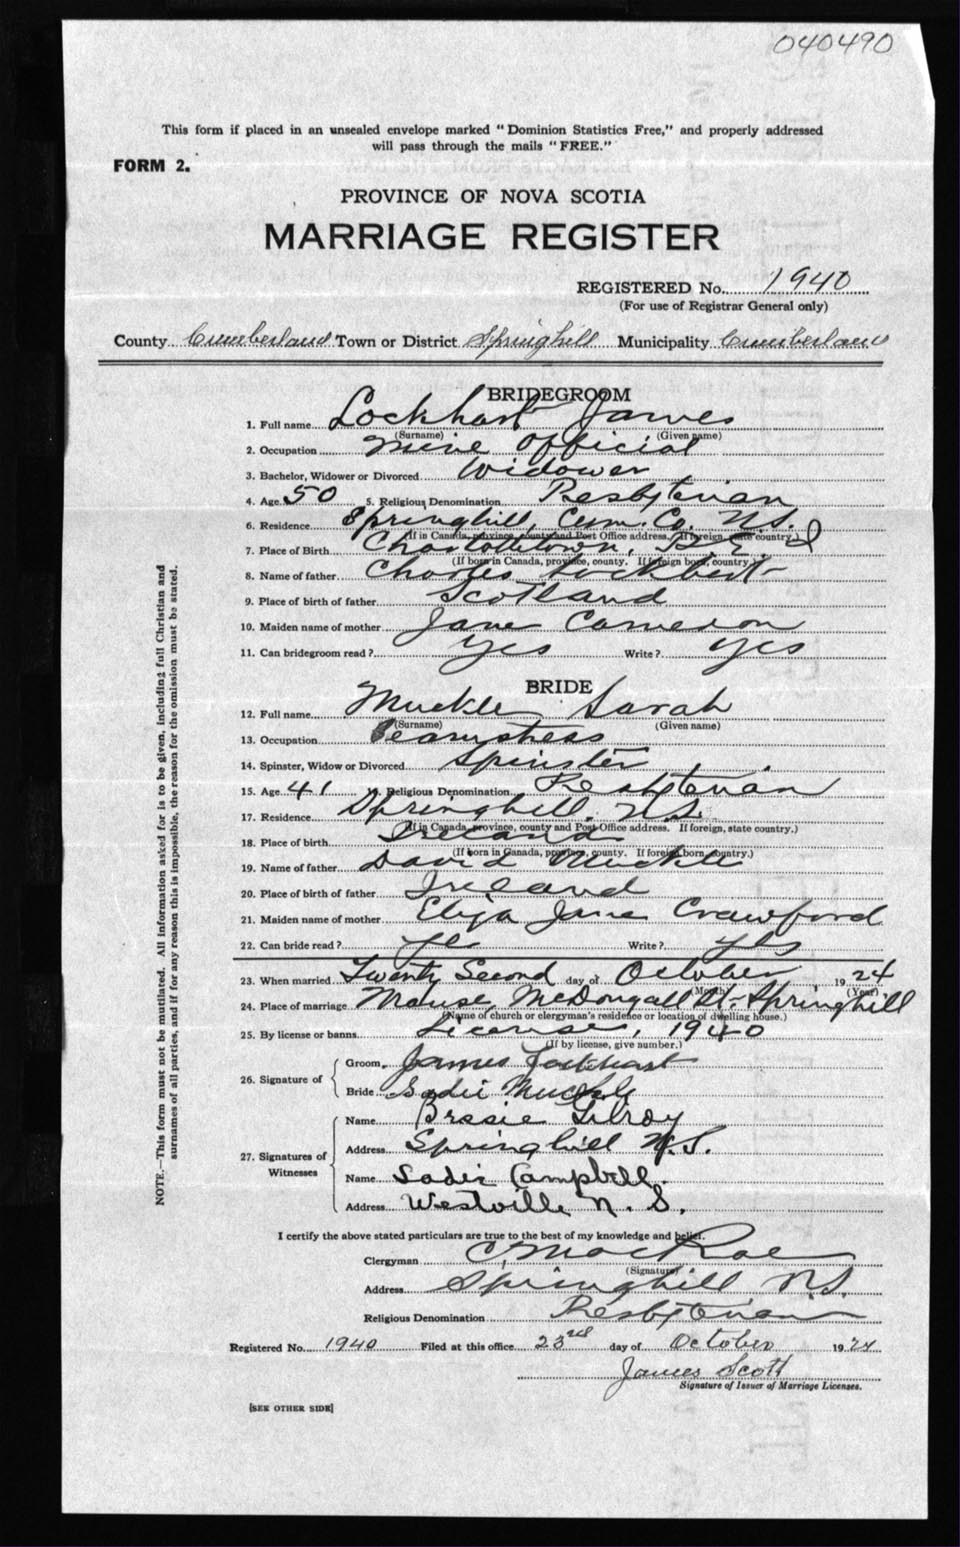 040490
This form if placed in an unsealed envelope marked "Dominion Statistics Free," and properly addressed
will pass through the mails "FREE."
FORM 2.
PROVINCE OF NOVA SCOTIA
MARRIAGE REGISTER
REGISTERED No. 1940
(For use of Registrar General only)
County Cumberland Town or District Springhill Municipality Cumberland
BRIDEGROOM
1. Full name Lockhart James
(Surname) (Given name)
2. Occupation Mine Official
3. Bachelor, Widower or Divorced Widower
4. Age 50 5. Religious Denomination Presbyterian
6. Residence Springhill, Cum. Co. N.S.
(If in Canada, province, county and Post Office address. If foreign, state country.)
7. Place of Birth Charlottetown, P.E.I
(If born in Canada, province, county. If foreign born, country.)
8. Name of father Charles Lockhart
9. Place of birth of father Scotland
10. Maiden name of mother Jane Cameron
11. Can bridegroom read? Yes Write? Yes
BRIDE
12. Full name Muckle Sarah
(Surname) (Given name)
13. Occupation Seamstress
14. Spinster, Widow or Divorced Spinster
15. Age 41 16. Religious Denomination Presbyterian
17. Residence Springhill. N.S.
(If in Canada, province, county and Post Office address. If foreign, state country.)
18. Place of birth Ireland
(If born in Canada, province, county. If foreign born, country.)
19. Name of father David Muckle
20. Place of birth of father Ireland
21. Maiden name of mother Eliza Jane Crawford
22. Can bride read? yes Write? yes
23. When married Twenty Second day of October 1924
(Month) (Year)
24. Place of marriage McDougall St. Springhill
(Name of church or clergyman's residence or location of dwelling house.)
25. By license or banns License, 1940
(If by license, give number.)
26. Signature of
Groom James Lockhart
Bride Sadie Muckle
27. Signatures of Witnesses
Name Bessie Gilroy
Address Springhill N.S.
Name Sadie Campbell.
Address Westville N.S.
I certify the above stated particulars are true to the best of my knowledge and belief.
Clergyman MacRae
(Signature)
Address Springhill N.S.
Religious Denomination Presbyterian
Registered No. 1940 Filed at this office 23rd day of October 1924
James Scott
Signature of Issuer of Marriage Licenses.
[SEE OTHER SIDE]
NOTE.—This form must not be mutilated. All information asked for is to be given, including full Christian and
surnames of all parties, and if for any reason this is impossible, the reason for the omission must be stated.